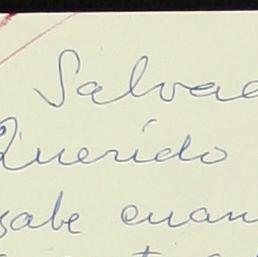 Salvad
Querido
sabe cuan